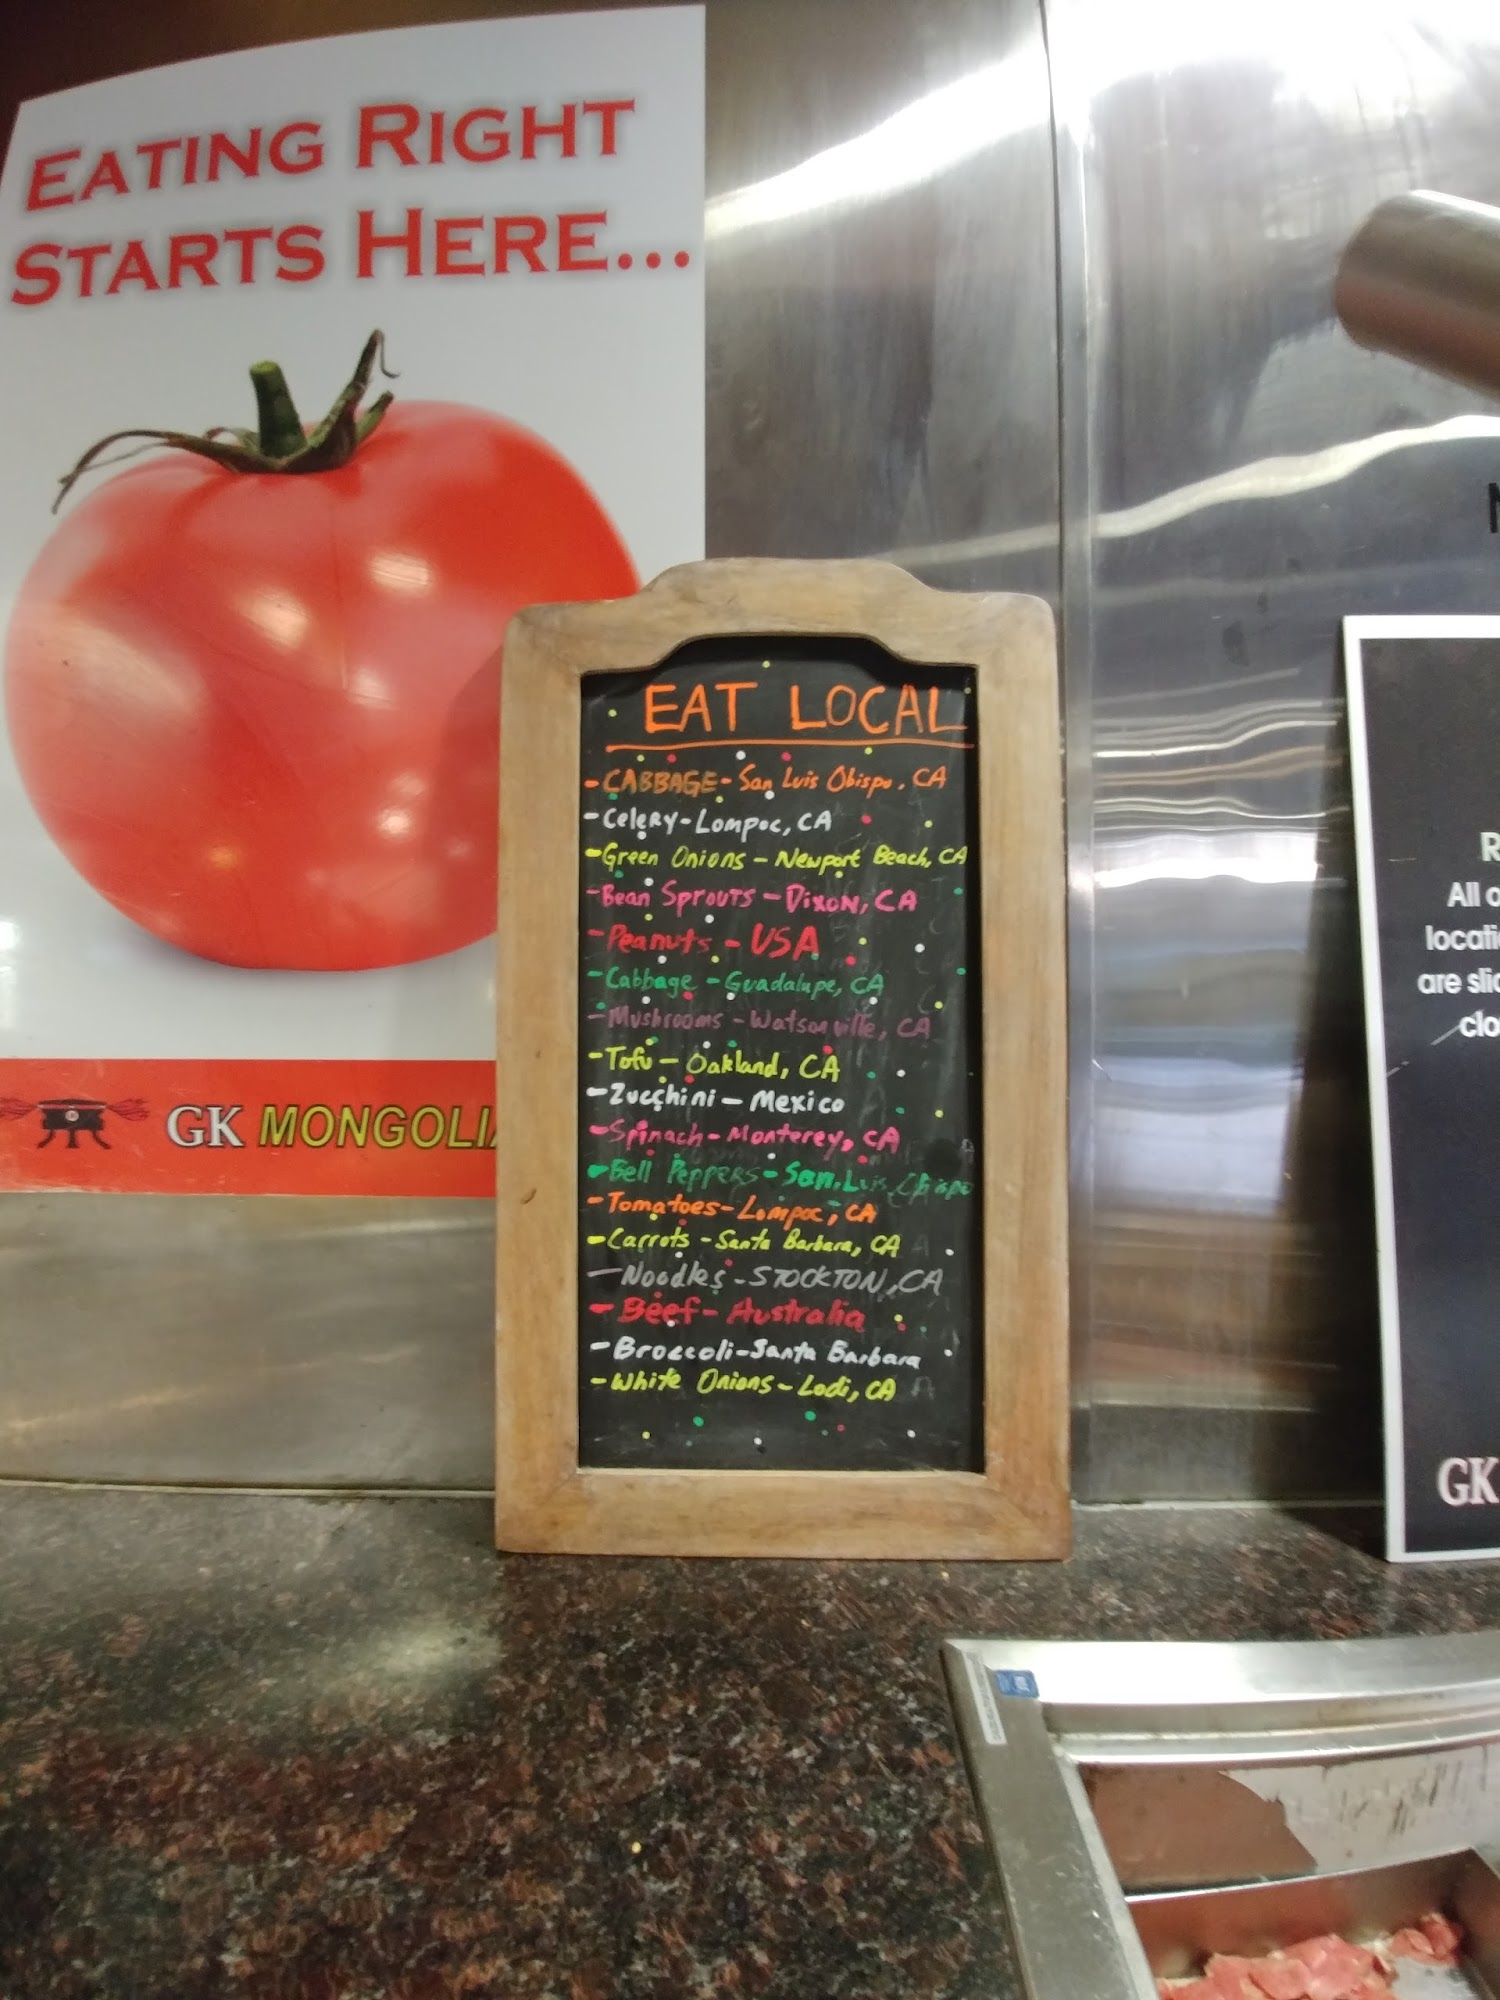 EATING RIGHT
STARTS HERE...
GK MONGOLI
EAT LOCAL
- CABBAGE - San Luis Obispo, CA
- Celery - Lompoc, CA
- Green Onions - Newport Beach, CA
- Bean Sprouts - Dixon, CA
- Peanuts - USA
- Cabbage - Guadalupe, CA
- Mushrooms - Watsonville, CA
- Tofu - Oakland, CA
- Zucchini - Mexico
- Spinach - Monterey, CA
- Bell Peppers - San Luis Obispo
- Tomatoes - Lompoc, CA
- Carrots - Santa Barbara, CA
- Noodles - STOCKTON, CA
- Beef - Australia
- Broccoli - Santa Barbara
- White Onions - Lodi, CA
R
All o
locati
are slic
clo
GK